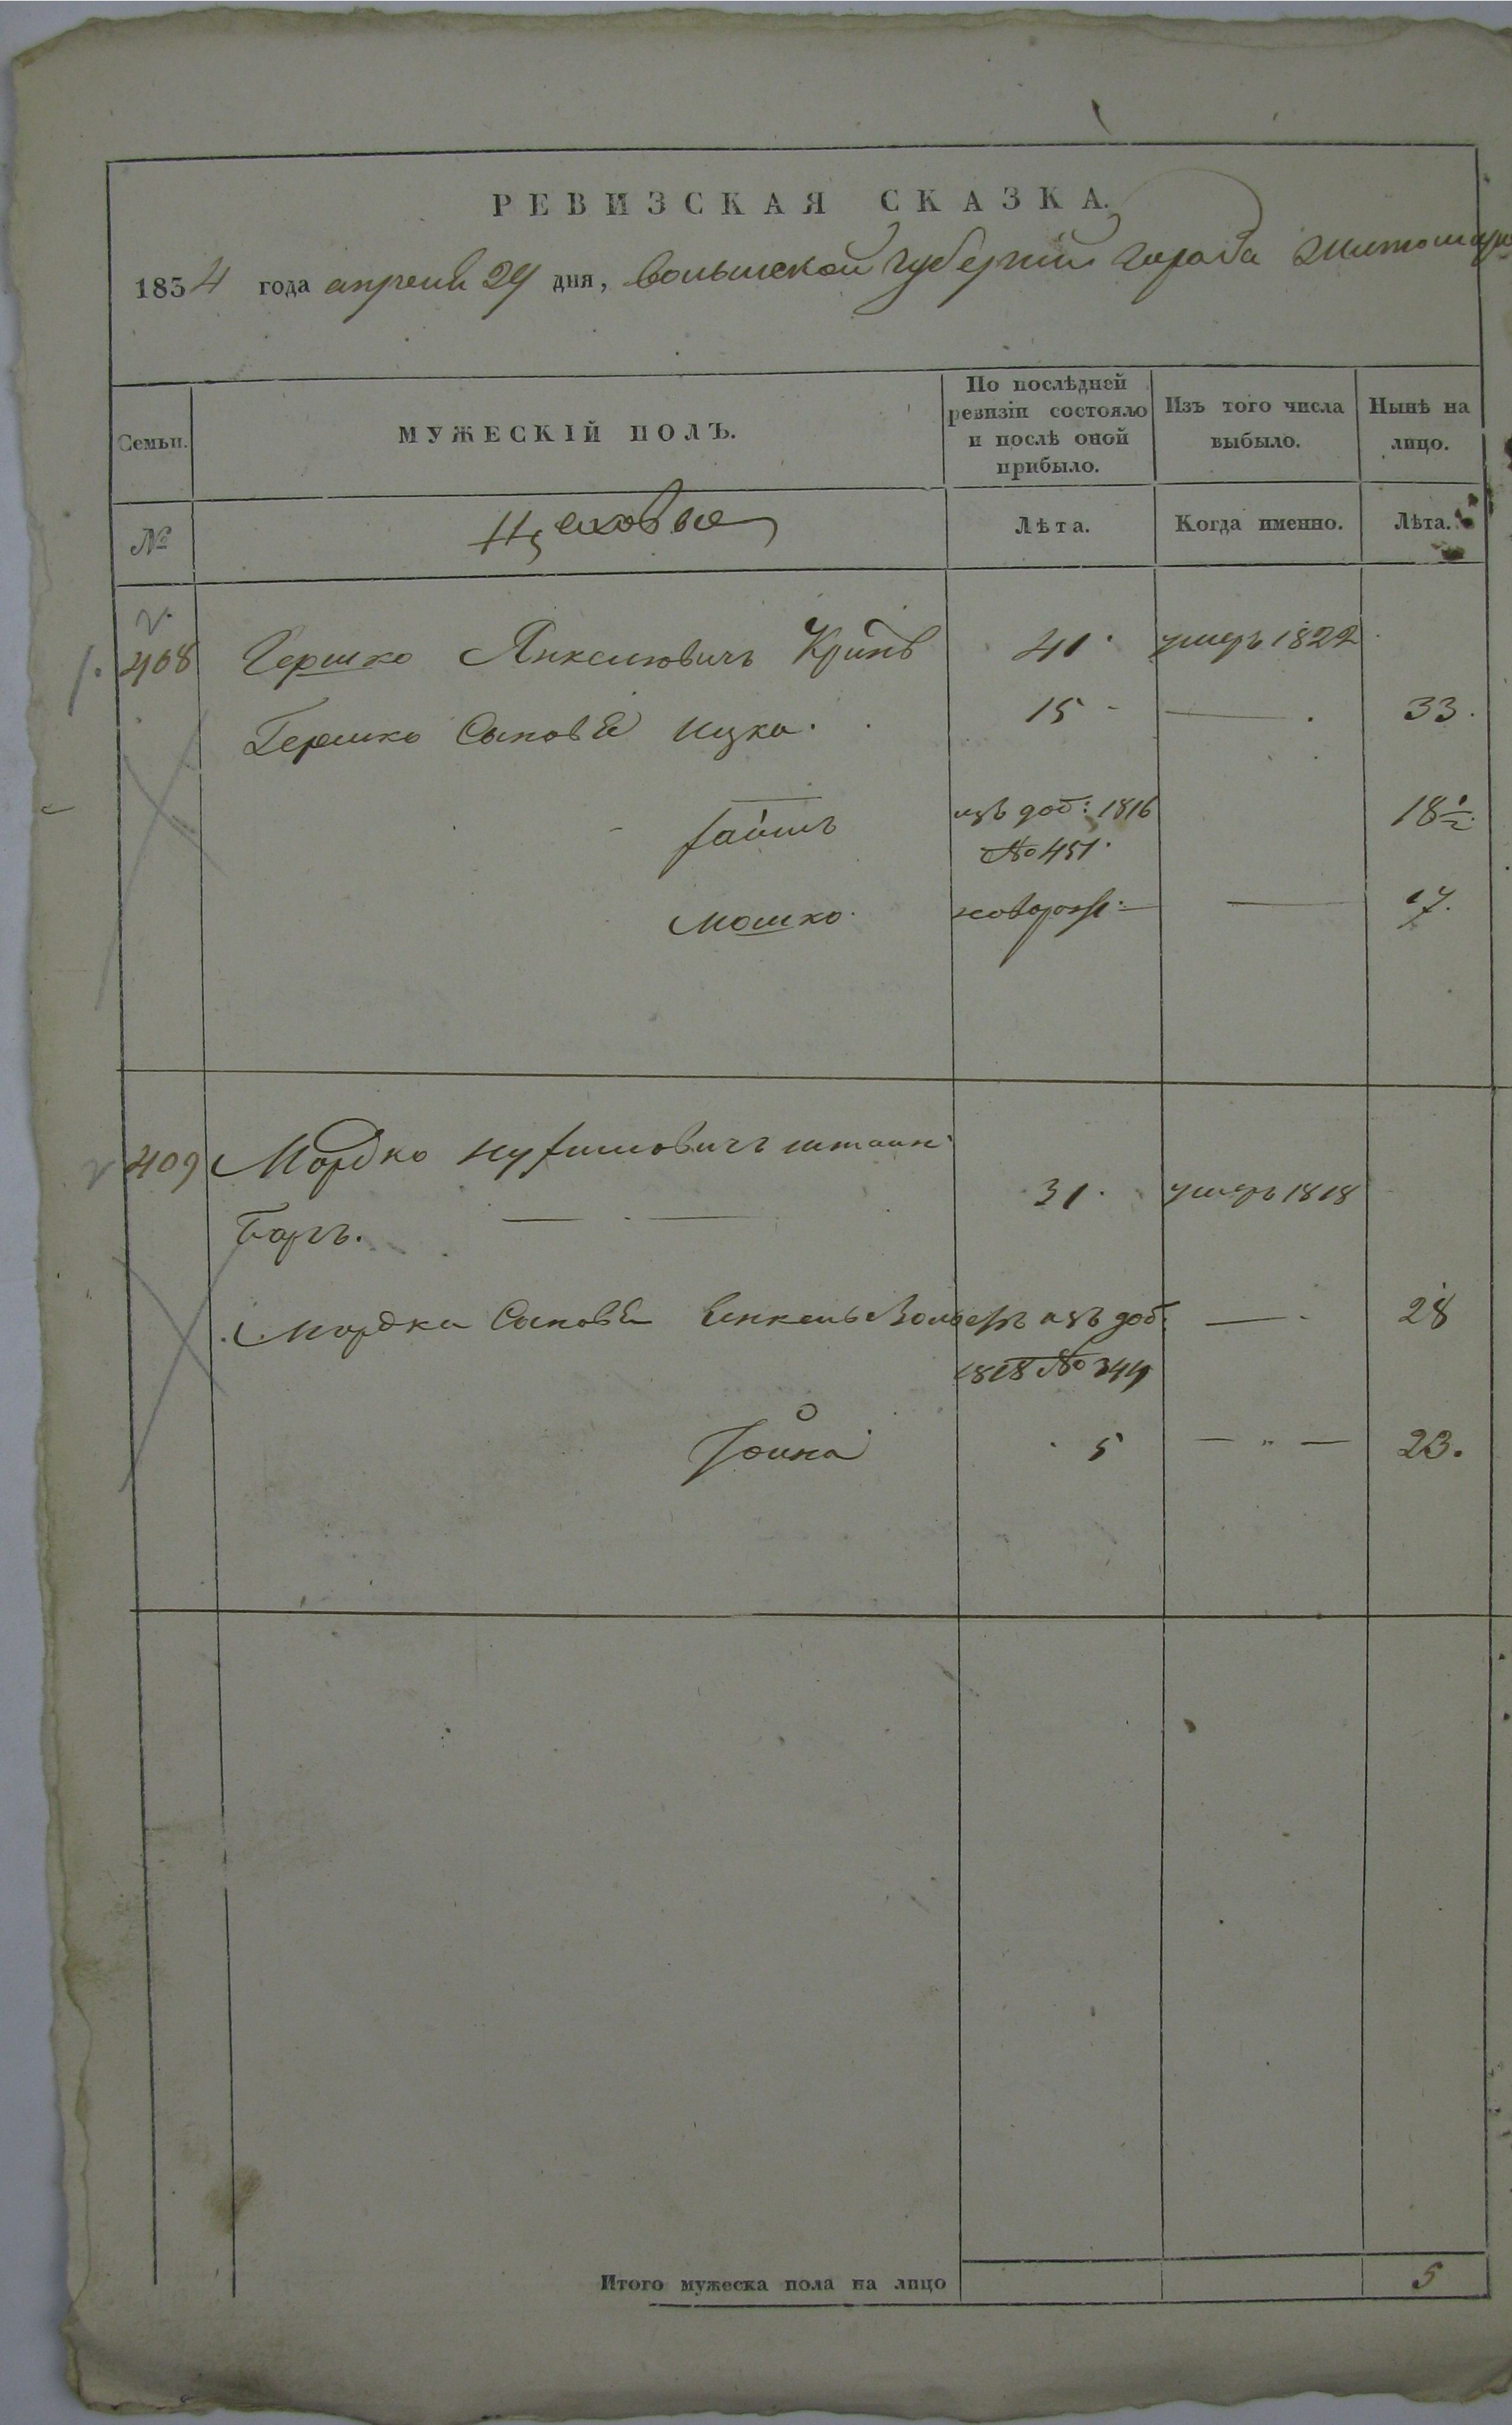 РЕВИЗСКАЯ СКАЗКА.
1834 года апреля 29 дня, волынской губернии города Житомира
Семьи.
МУЖЕСКІЙ ПОЛЪ.
По послѣдней ревизіи состояло и послѣ оной прибыло.
Изъ того числа выбыло.
Нынѣ на лицо.
№
Цеховые
Лѣта.
Когда именно.
Лѣта.
408 Гершко Янкелювичъ 41 умеръ 1822
Гершко Сыновья Ицка 15 33.
изъ доб: 1816 18½
№ 451
Мошко новорож: 17.
409 Мордко штаин
31. умеръ 1818
баръ.
Мордка Сыновья изъ доб: 28
1818 № 344
Іоина 5 23.
Итого мужеска пола на лицо 5